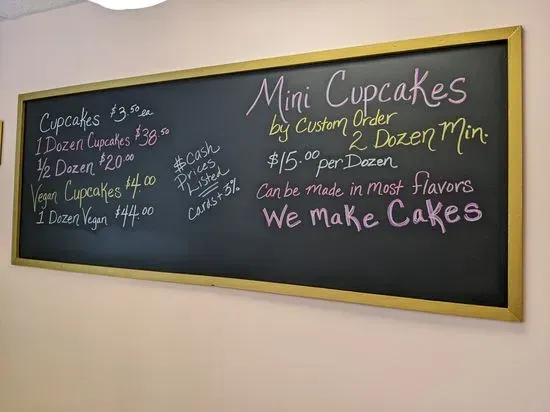 Cupcakes $3.50 ea
1 Dozen Cupcakes $38.50
1/2 Dozen $20.00
Vegan Cupcakes $4.00
1 Dozen Vegan $44.00
$Cash
Prices
Listed
cards + 3%
Mini Cupcakes
by Custom Order
2 Dozen Min.
$15.00 per Dozen
Can be made in most flavors
We make Cakes